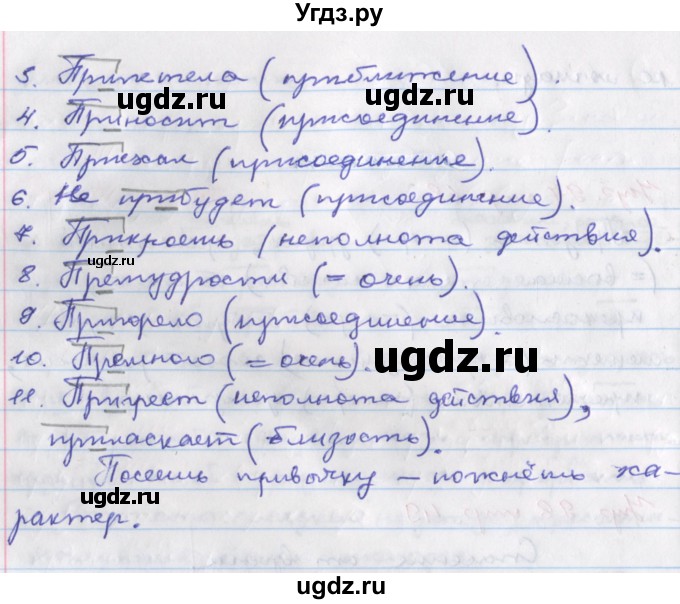 Угдз.ру
3. Прилетела (приближение).
4. Приносит (присоединение).
5. Приехал (присоединение).
6. Не прибудет (присоединение).
7. Прикроешь (неполнота действия).
8. Премудрости (= очень).
9. Пригорело (присоединение).
10. Премного (= очень).
11. Пригреет (неполнота действия),
приласкает (близость).
Посеешь привычку – пожнёшь ха-
рактер.
ugdz.ru
ugdz.ru
ugdz.ru
ugdz.ru
ugdz.ru
ugdz.ru
ugdz.ru
ugdz.ru
ugdz.ru
ugdz.ru